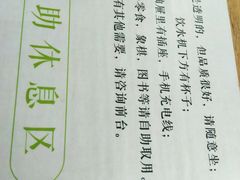 助休息区
是透明的，但品质很好，请随意坐；
饮水机下方有杯子；
抽屉里有插座，手机充电线；
零食，象棋，图书等请自助取用。
有其他需要，请咨询前台。